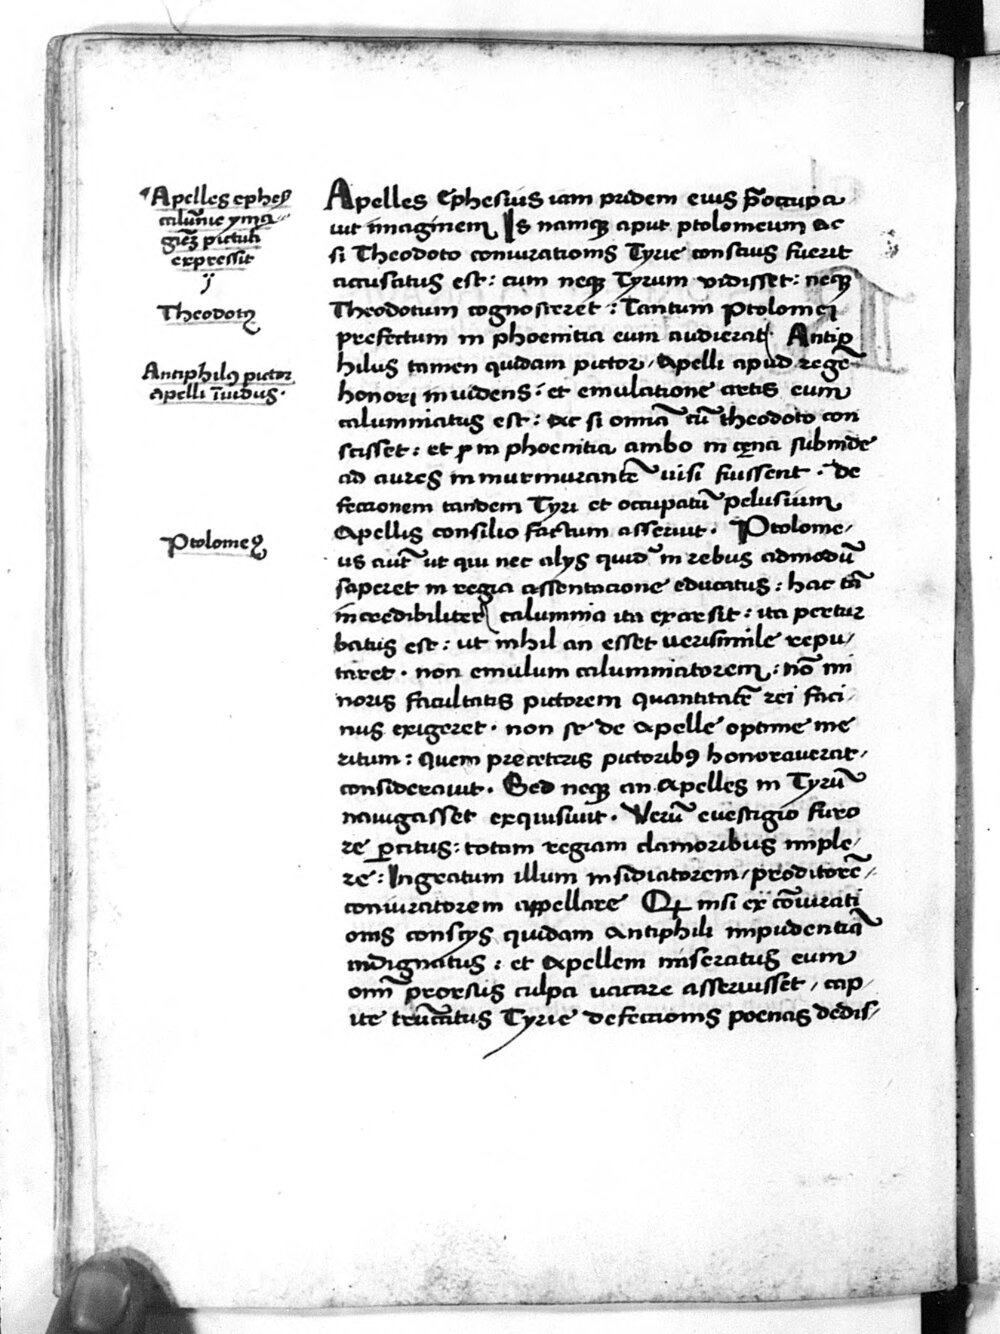 Apelles ephes9
calūnie yma
ginē3 pictura
expressit
ij
Theodot9
Antiphil9 pictor
apelli īuidus·
Ptolome9
Apelles Ephesius iam pridem eius p̄occupa
uit imaginem Is namq3 aput ptolomeum ac
si Theodoto coniurationis Tyrie conscius fuerit
accusatus est: cum neq3 Tyrum vidisset: neq3
Theodotum cognosceret: Tantum Ptolomei
prefectum in phoenitia eum audierat Antip
hilus tamen quidam pictor/ Apelli apud regē
honori inuidens: et emulatione artis eum
calumniatus est: Ac si omnia cū theodoto con
scisset: et ꝙ in phoenitia ambo in cęna subinde
ad aures inmurmurantē uisi fuissent· de
fectionem tandem Tyri et occupatū pelusium
Apellis consilio factum asseruit· Ptolome/
us aut̄ ut qui nec alys quid̄ in rebus admodū
saperet in regia assentacione educatus: hac tā
incredibiliter calumnia ita exarsit: ita pertur
batus est: ut nihil an esset uerisimile repu/
taret· non emulum calumniatorem: nō mi
noris facultatis pictorem quantitatē rei faci/
nus exigeret· non se de Apelle optime me
ritum: quem preceteris pictorib9 honorauerat/
considerauit· Sed neq3 an Apelles in Tyrū
nauigasset exquisiuit· Verū euestigio furo
re ꝑcitus: totam regiam clamoribus imple/
re: Ingratum illum insidiatorem/ proditorē/
coniuratorem appellare Qꝙ nisi ex cōiurati
onis conscijs quidam Antiphili impudentiā
indignatus: et Apellem miseratus eum
omī prorsus culpa uacare asseruisset/ cap/
ite trūcatus Tyrie defectionis poenas dedis/